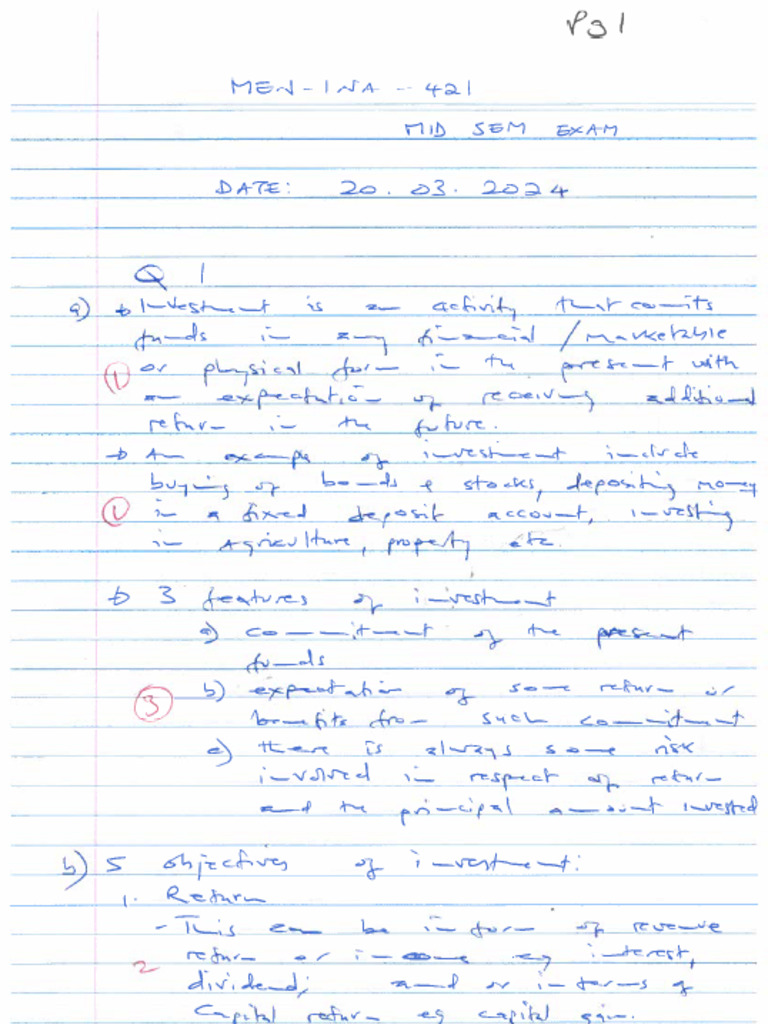 Pg 1
MEN-INA - 421
MID SEM EXAM
DATE: 20.03.2024
Q 1
a) → Investment is an activity that commits
funds in any financial / marketable
① or physical form in the present with
an expectation of receiving additional
return in the future.
→ An example of investment include
buying of bonds & stocks, depositing money
① in a fixed deposit account, investing
in Agriculture, property etc.
→ 3 features of investment
a) commitment of the present
funds
③ b) expectation of some return or
benefits from such commitment
c) there is always some risk
involved in respect of return
and the principal amount invested
b) 5 objectives of investment:
1. Return
- This can be in form of revenue
return or income eg interest,
2 dividend; and or in terms of
Capital return eg capital gain.